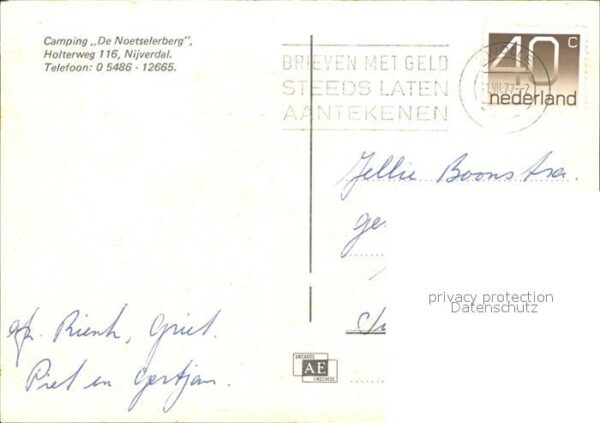 Camping „De Noetselerberg”,
Holterweg 116, Nijverdal.
Telefoon: 0 5486 - 12665.
BRIEVEN MET GELD
STEEDS LATEN
AANTEKENEN
40 c
nederland
Jellie Boonstra.
privacy protection
Datenschutz
Rienk, Griet.
Piet en Gertjan.
ANCARDS
AE
ENSCHEDE